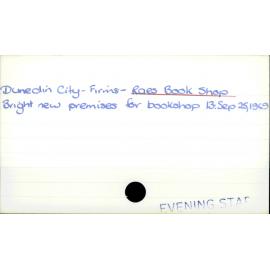 Dunedin City - Firms - Raes Book Shop
Bright new premises for bookshop 13: Sep 25, 1969
EVENING STAR